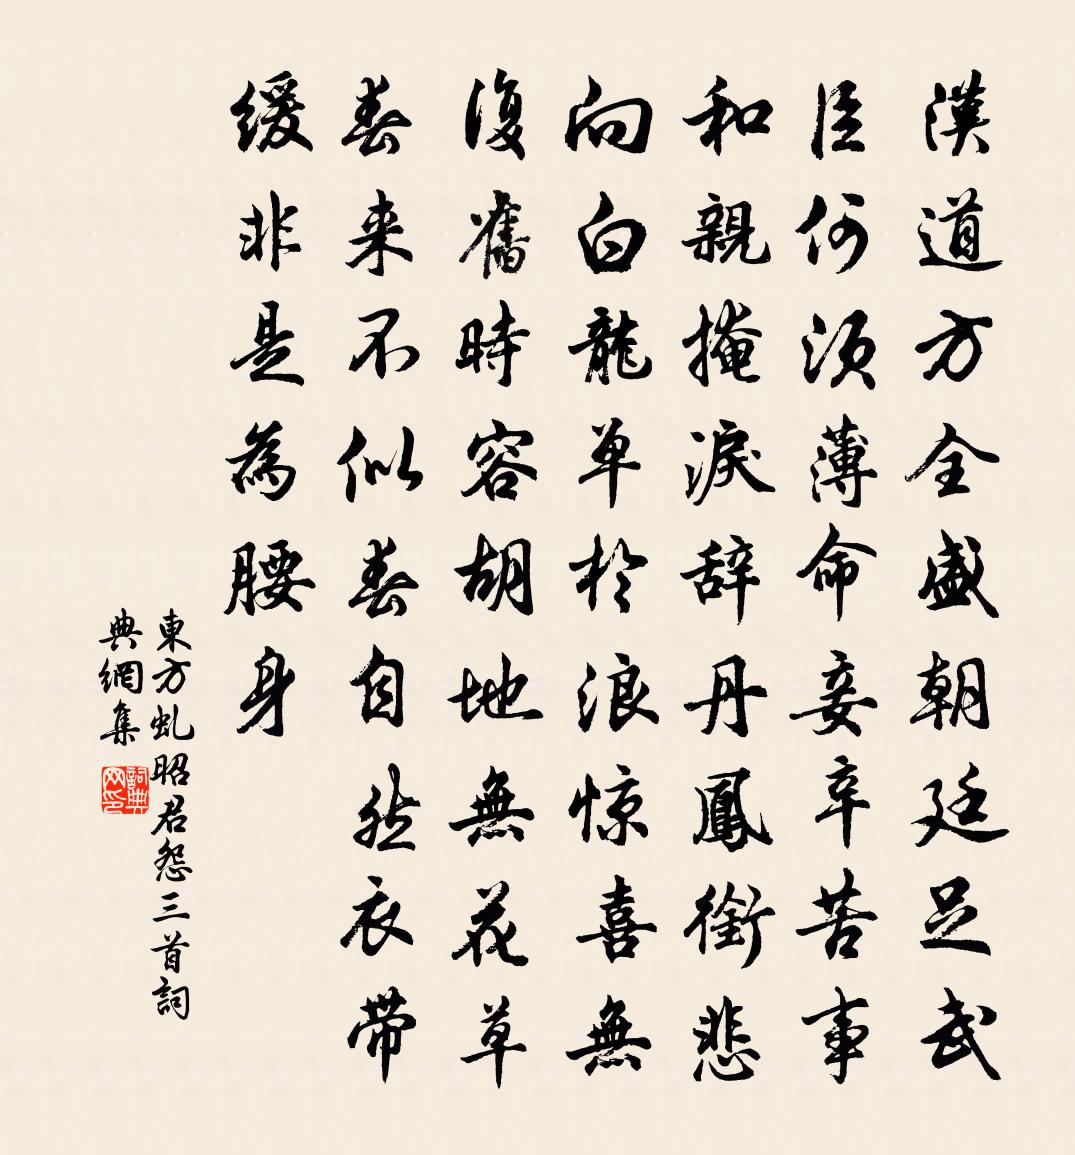 漢道方全盛朝廷足武
臣何須薄命妾辛苦事
和親掩淚辞丹鳳銜悲
向白龍单於浪惊喜無
復舊時容胡地無花草
春来不似春自然衣带
缓非是為腰身
東方虬昭君怨三首詞
典網集
詞典
网印